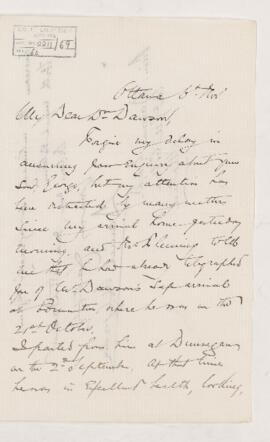 2211/69
Ottawa 6th Nov
My Dear Dr Dawson,
Forgive my delay in
answering your enquiry about your
Son George, but my attention has
been distracted by many matters
since my arrival home yesterday
morning, and Mr Fleming told
me that he had already telegraphed
you of Mr Dawson's safe arrival
at Edmonton where he was on the
21st October.
I parted from him at Dunvegan
on the 2nd September. At that time
he was in excellent health, looking,